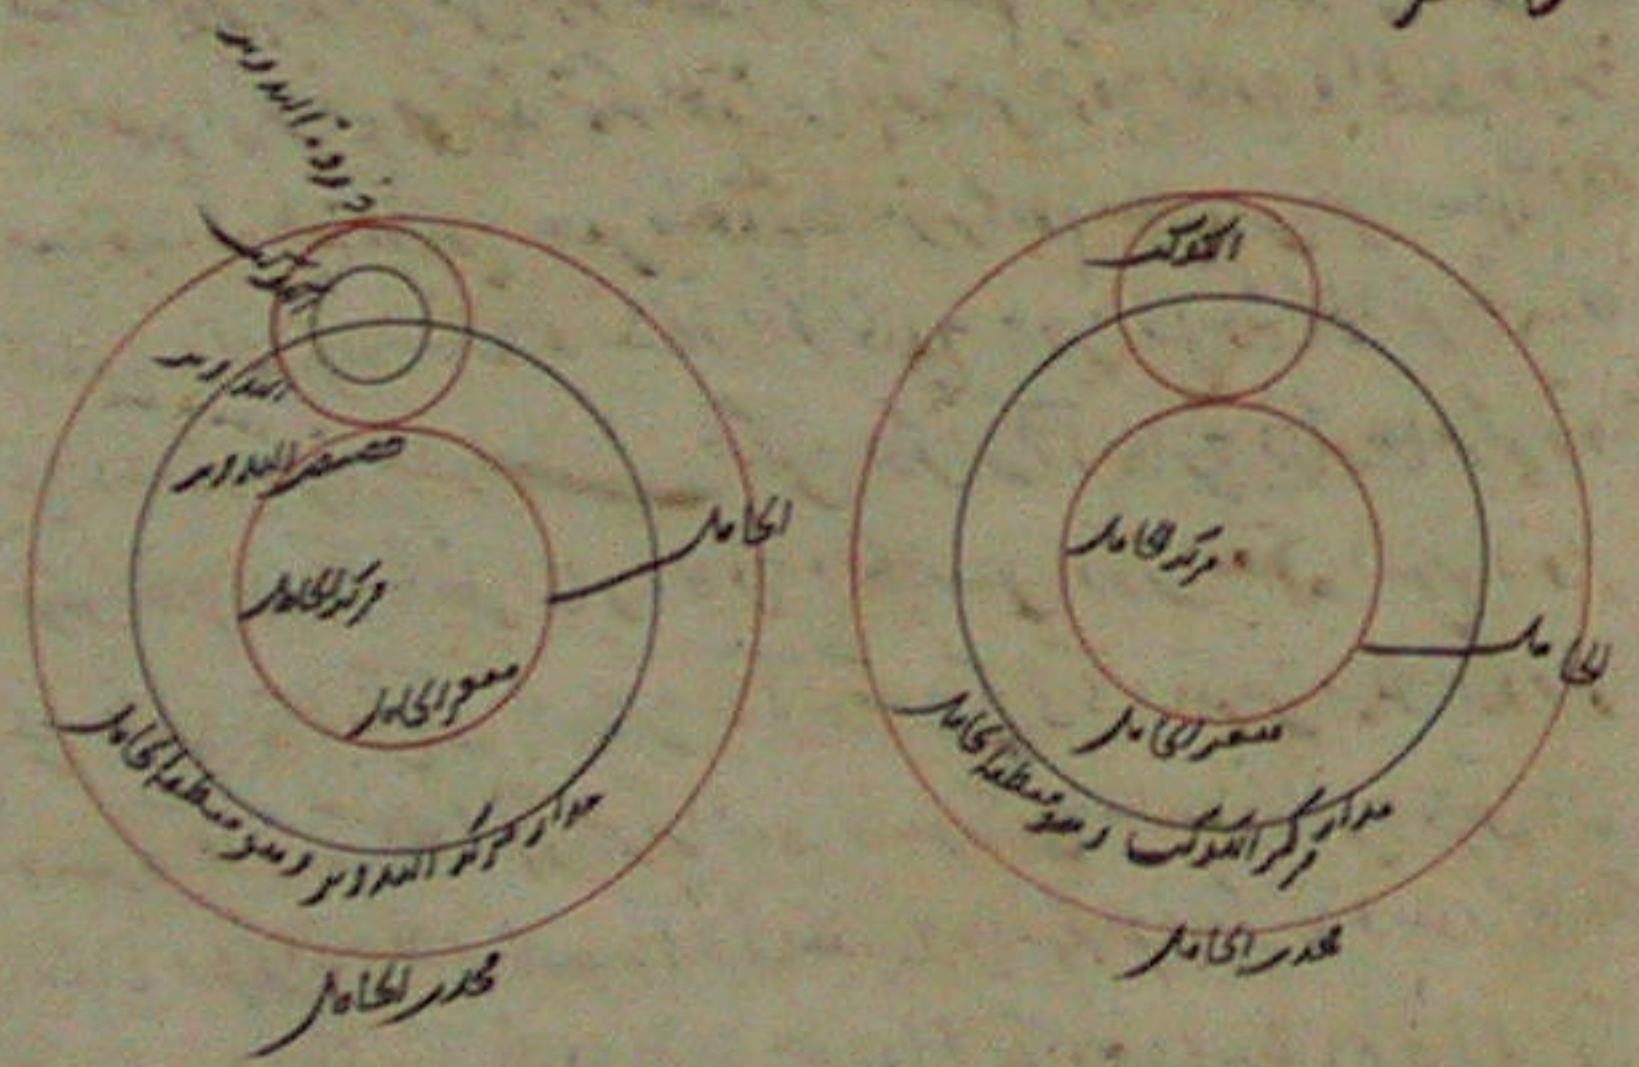 الكوكب
مركز الحامل
الحامل
مقعر الحامل
مدار مركز الكوكب وهو منطقة الحامل
محدب الحامل
ذروة التدوير
الكوكب
التدوير
حضيض التدوير
الحامل
مركز الحامل
مقعر الحامل
مدار مركز التدوير وهو منطقة الحامل
محدب الحامل